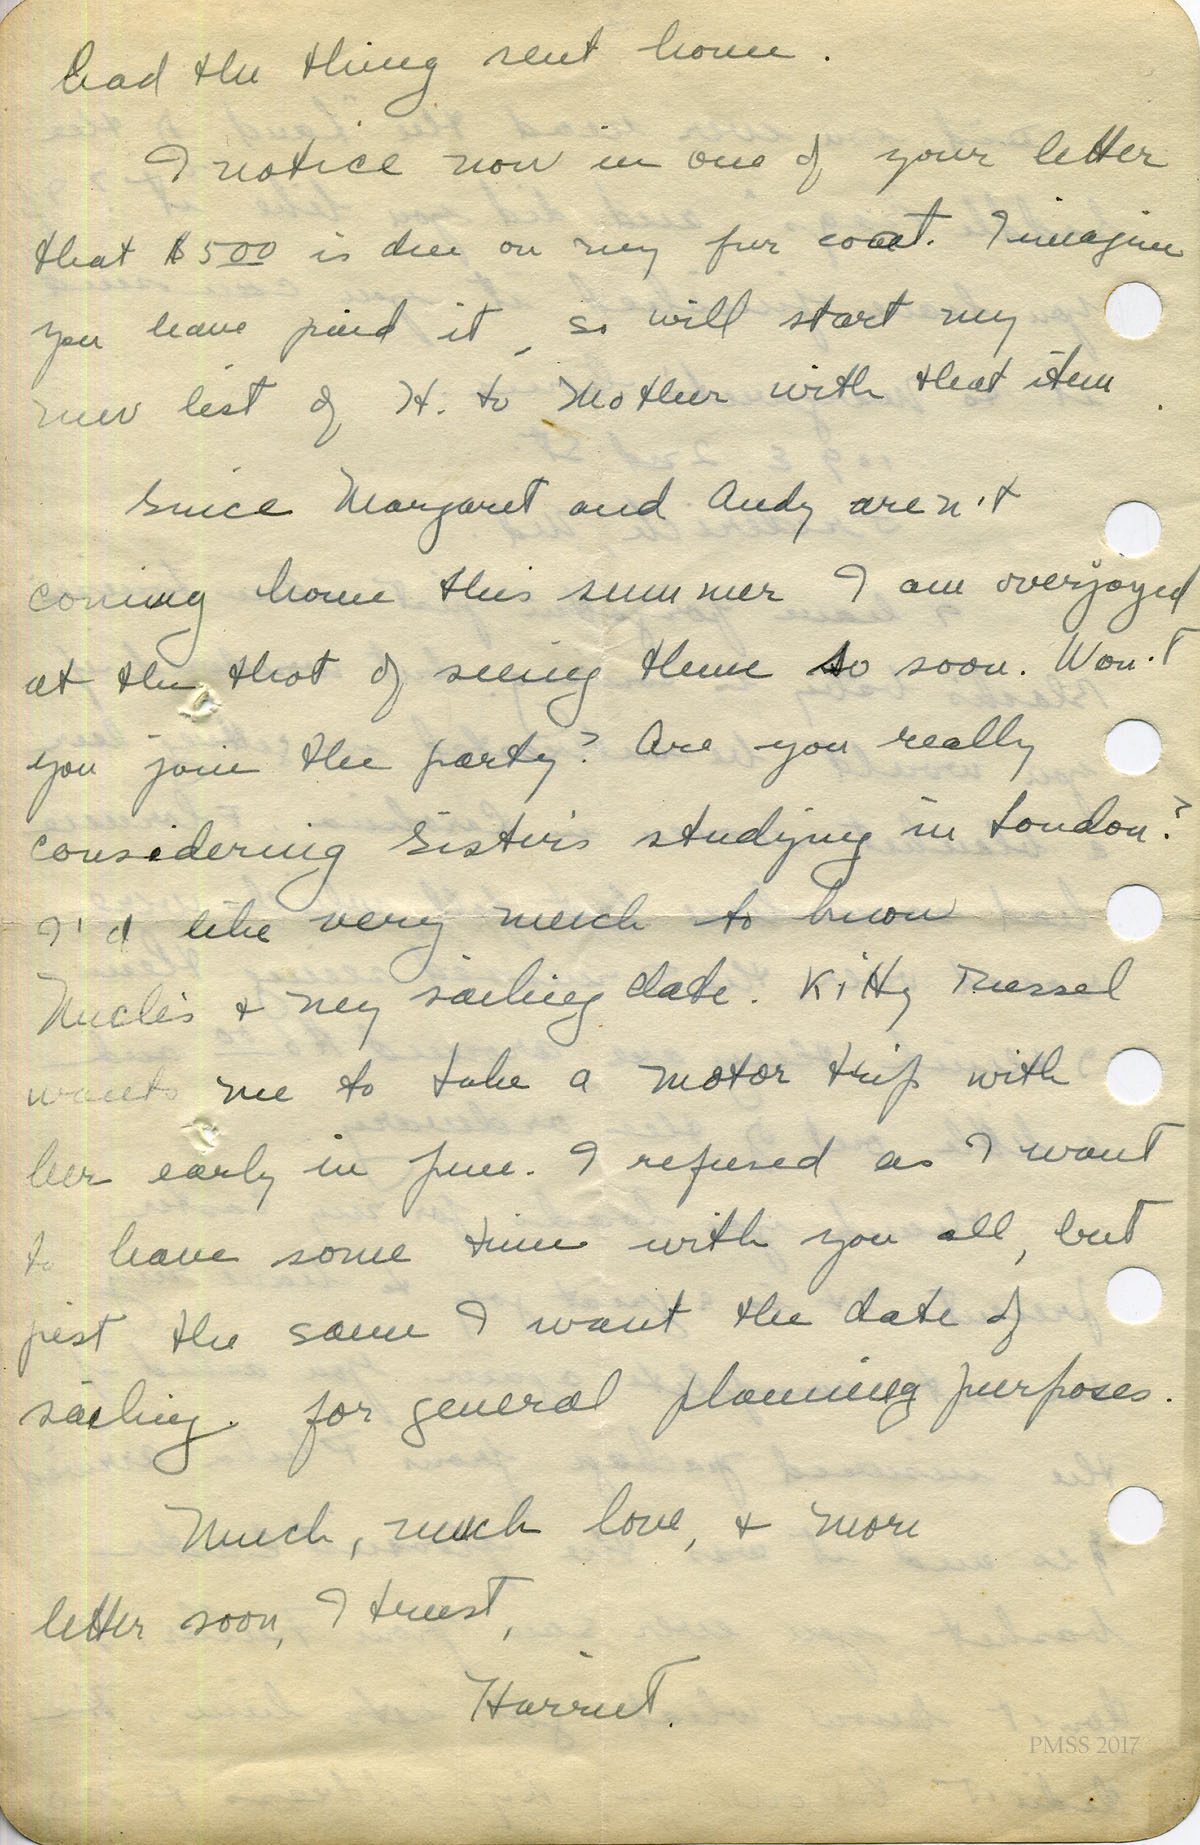 had the thing sent home.
I notice now in one of your letter
that $5 00 is due on my fur coat. I imagine
you have paid it, so will start my
new list of H. to Mother with that item.
Since Margaret and Andy aren't
coming home this summer I am overjoyed
at the thot of seeing them so soon. Won't
you join the party? Are you really
considering Sister's studying in London?
I'd like very much to know
& my sailing date. Kitty
wants me to take a motor trip with
her early in June. I refused as I want
to have some time with you all, but
just the same I want the date of
sailing for general planning purposes.
Much, much love, & more
letter soon, I trust,
Harriet.
PMSS 2017